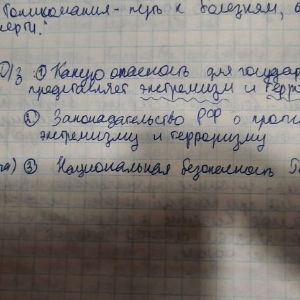 Голикомания - путь к болезням,
смерти."
Д/з ① Какую опасность для государ
представляет экстремизм и терро
② Законодательство РФ о проти
экстремизму и терроризму
③ Национальная безопасность